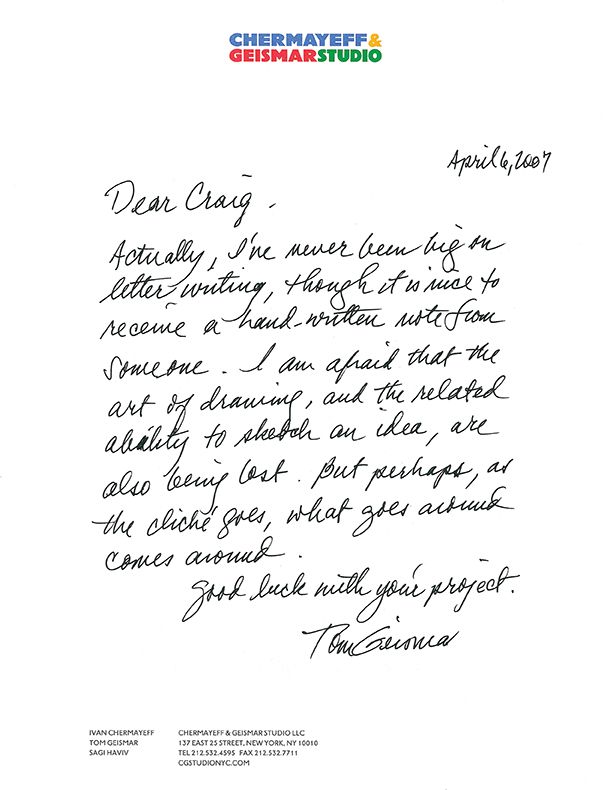 CHERMAYEFF&
GEISMARSTUDIO
April 6, 2007
Dear Craig.
Actually, I've never been big on
letter writing, though it is nice to
receive a hand-written note from
someone. I am afraid that the
art of drawing, and the related
ability to sketch an idea, are
also being lost. But perhaps, as
the cliché goes, what goes around
comes around.
Good luck with your project.
Tom Geismar
IVAN CHERMAYEFF
TOM GEISMAR
SAGI HAVIV
CHERMAYEFF & GEISMAR STUDIO LLC
137 EAST 25 STREET, NEW YORK, NY 10010
TEL 212.532.4595 FAX 212.532.7711
CGSTUDIONYC.COM